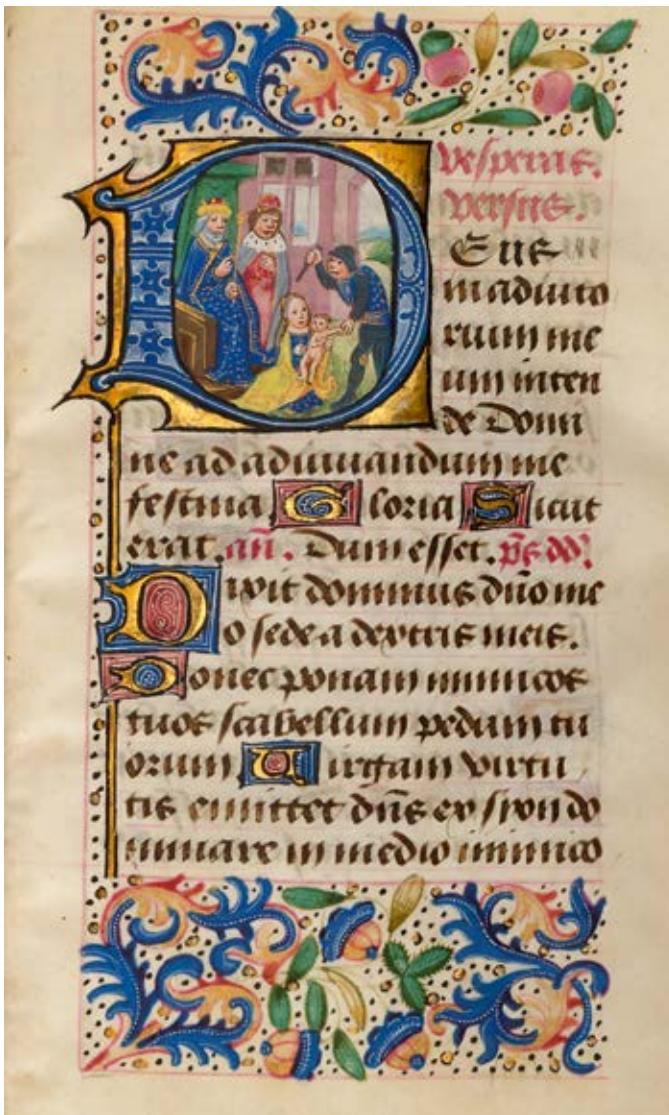 vesperas.
versus.
DEus
in adiuto
rium me
um inten
de Domi
ne ad adiuuandum me
festina Gloria Sicut
erat. an̄. Dum esset. p̄s dd̄.
Dixit dominus dn̄o me
o sede a dextris meis.
Donec ponam inimicos
tuos scabellum pedum tu
orum Uirgam virtu
tis emittet dn̄s ex syon do
minare in medio inimico